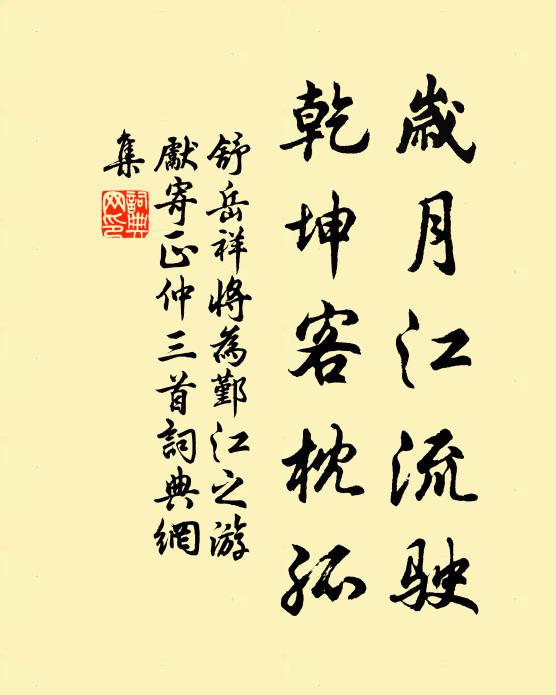 歲月江流駛
乾坤客枕孤
舒岳祥將為鄞江之游
獻寄正仲三首詞典網
集
詞典網印